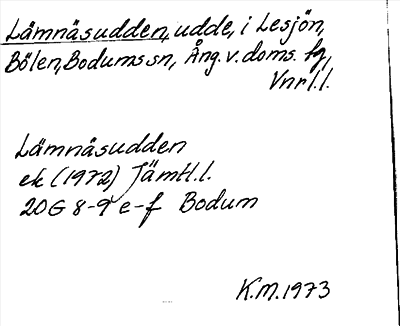 Lämnäsudden, udde, i Lesjön,
Bölen, Bodums sn, Ång. v. doms. fg,
Vnrl. l.
Lämnäsudden
ek (1972) Jämtl. l.
20G 8-9 e-f Bodum
K.M. 1973